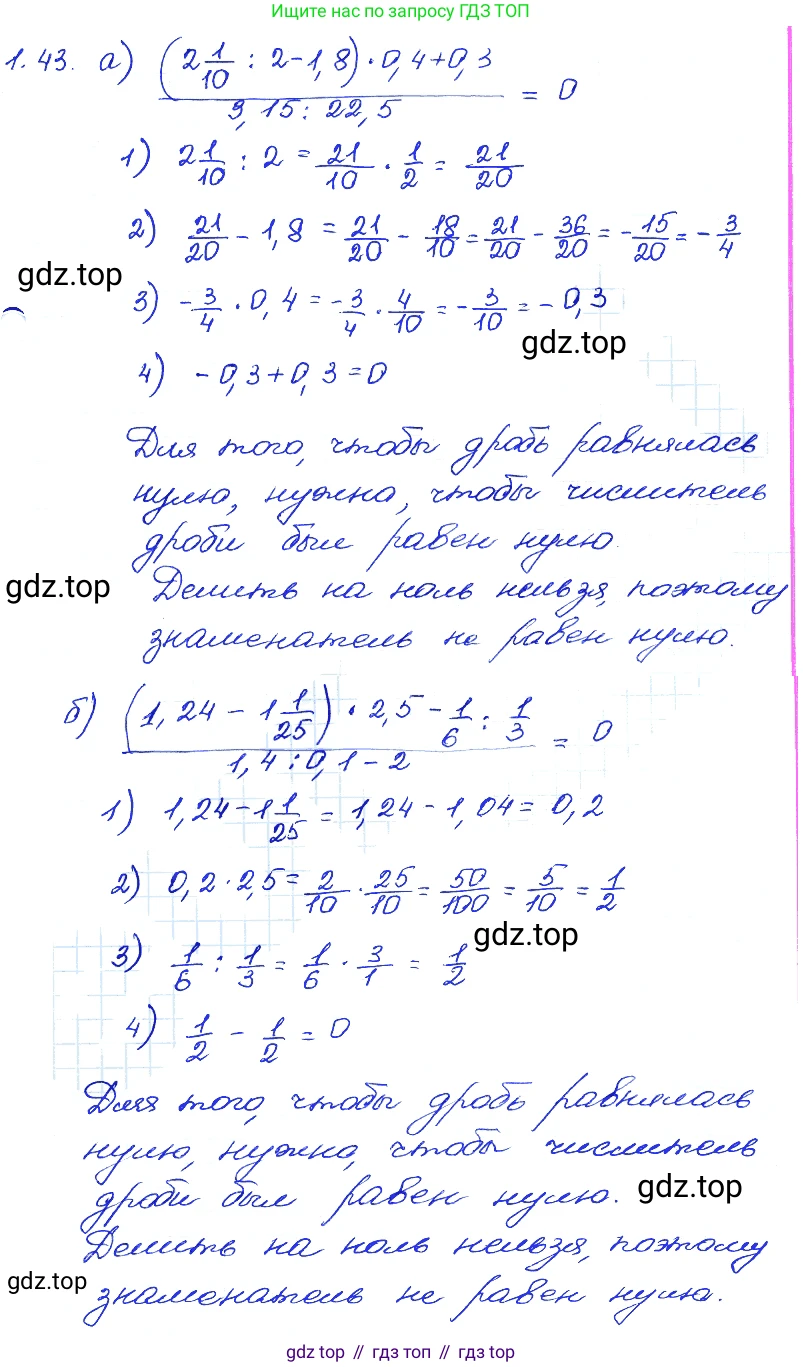 Ищите нас по запросу ГДЗ ТОП
1.43. а) ((2 1/10 : 2 - 1,8) · 0,4 + 0,3) / (3,15 : 22,5) = 0
1) 2 1/10 : 2 = 21/10 · 1/2 = 21/20
2) 21/20 - 1,8 = 21/20 - 18/10 = 21/20 - 36/20 = -15/20 = -3/4
gdz.top
3) -3/4 · 0,4 = -3/4 · 4/10 = -3/10 = -0,3
gdz.top
4) -0,3 + 0,3 = 0
Для того, чтобы дробь равнялась
нулю, нужно, чтобы числитель
дроби был равен нулю.
gdz.top
Делить на ноль нельзя, поэтому
знаменатель не равен нулю.
б) ((1,24 - 1 1/25) · 2,5 - 1/6 : 1/3) / (1,4 : 0,1 - 2) = 0
1) 1,24 - 1 1/25 = 1,24 - 1,04 = 0,2
2) 0,2 · 2,5 = 2/10 · 25/10 = 50/100 = 5/10 = 1/2
gdz.top
3) 1/6 : 1/3 = 1/6 · 3/1 = 1/2
4) 1/2 - 1/2 = 0
Для того, чтобы дробь равнялась
нулю, нужно, чтобы числитель
дроби был равен нулю.
gdz.top
Делить на ноль нельзя, поэтому
gdz.top
знаменатель не равен нулю.
gdz top // гдз топ // гдз top